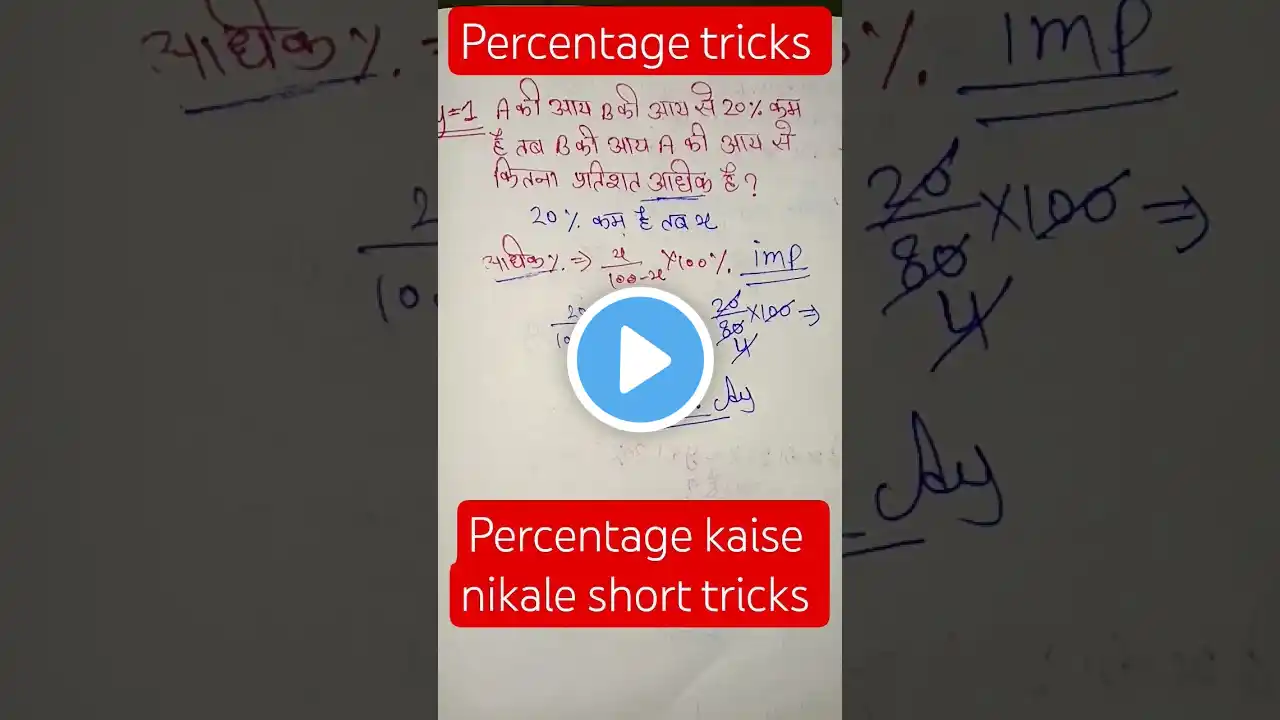 Percentage tricks
y=1 A की आय B की आय से 20% कम
है तब B की आय A की आय से
कितना प्रतिशत अधिक है ?
20% कम है तब x
अधिक % ⇒ x/100-x ×100% imp
20/80 ×100 ⇒
4
Percentage kaise
nikale short tricks